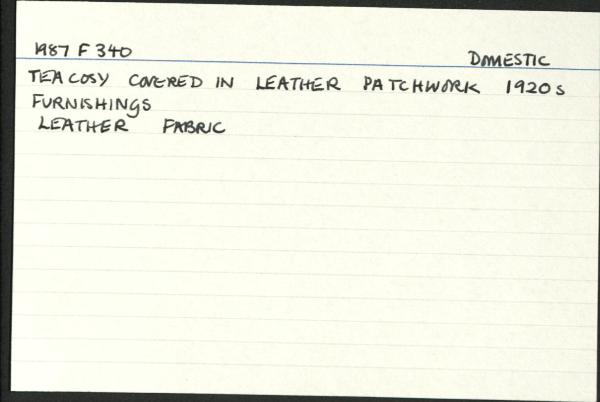 1987 F 340 DOMESTIC
TEA COSY COVERED IN LEATHER PATCHWORK 1920s
FURNISHINGS
LEATHER FABRIC